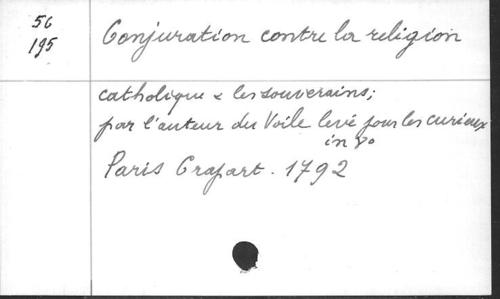 56
195
Conjuration contre la religion
catholique & les souverains;
par l'auteur du Voile levé pour les curieux
in 8o
Paris Crapart. 1792